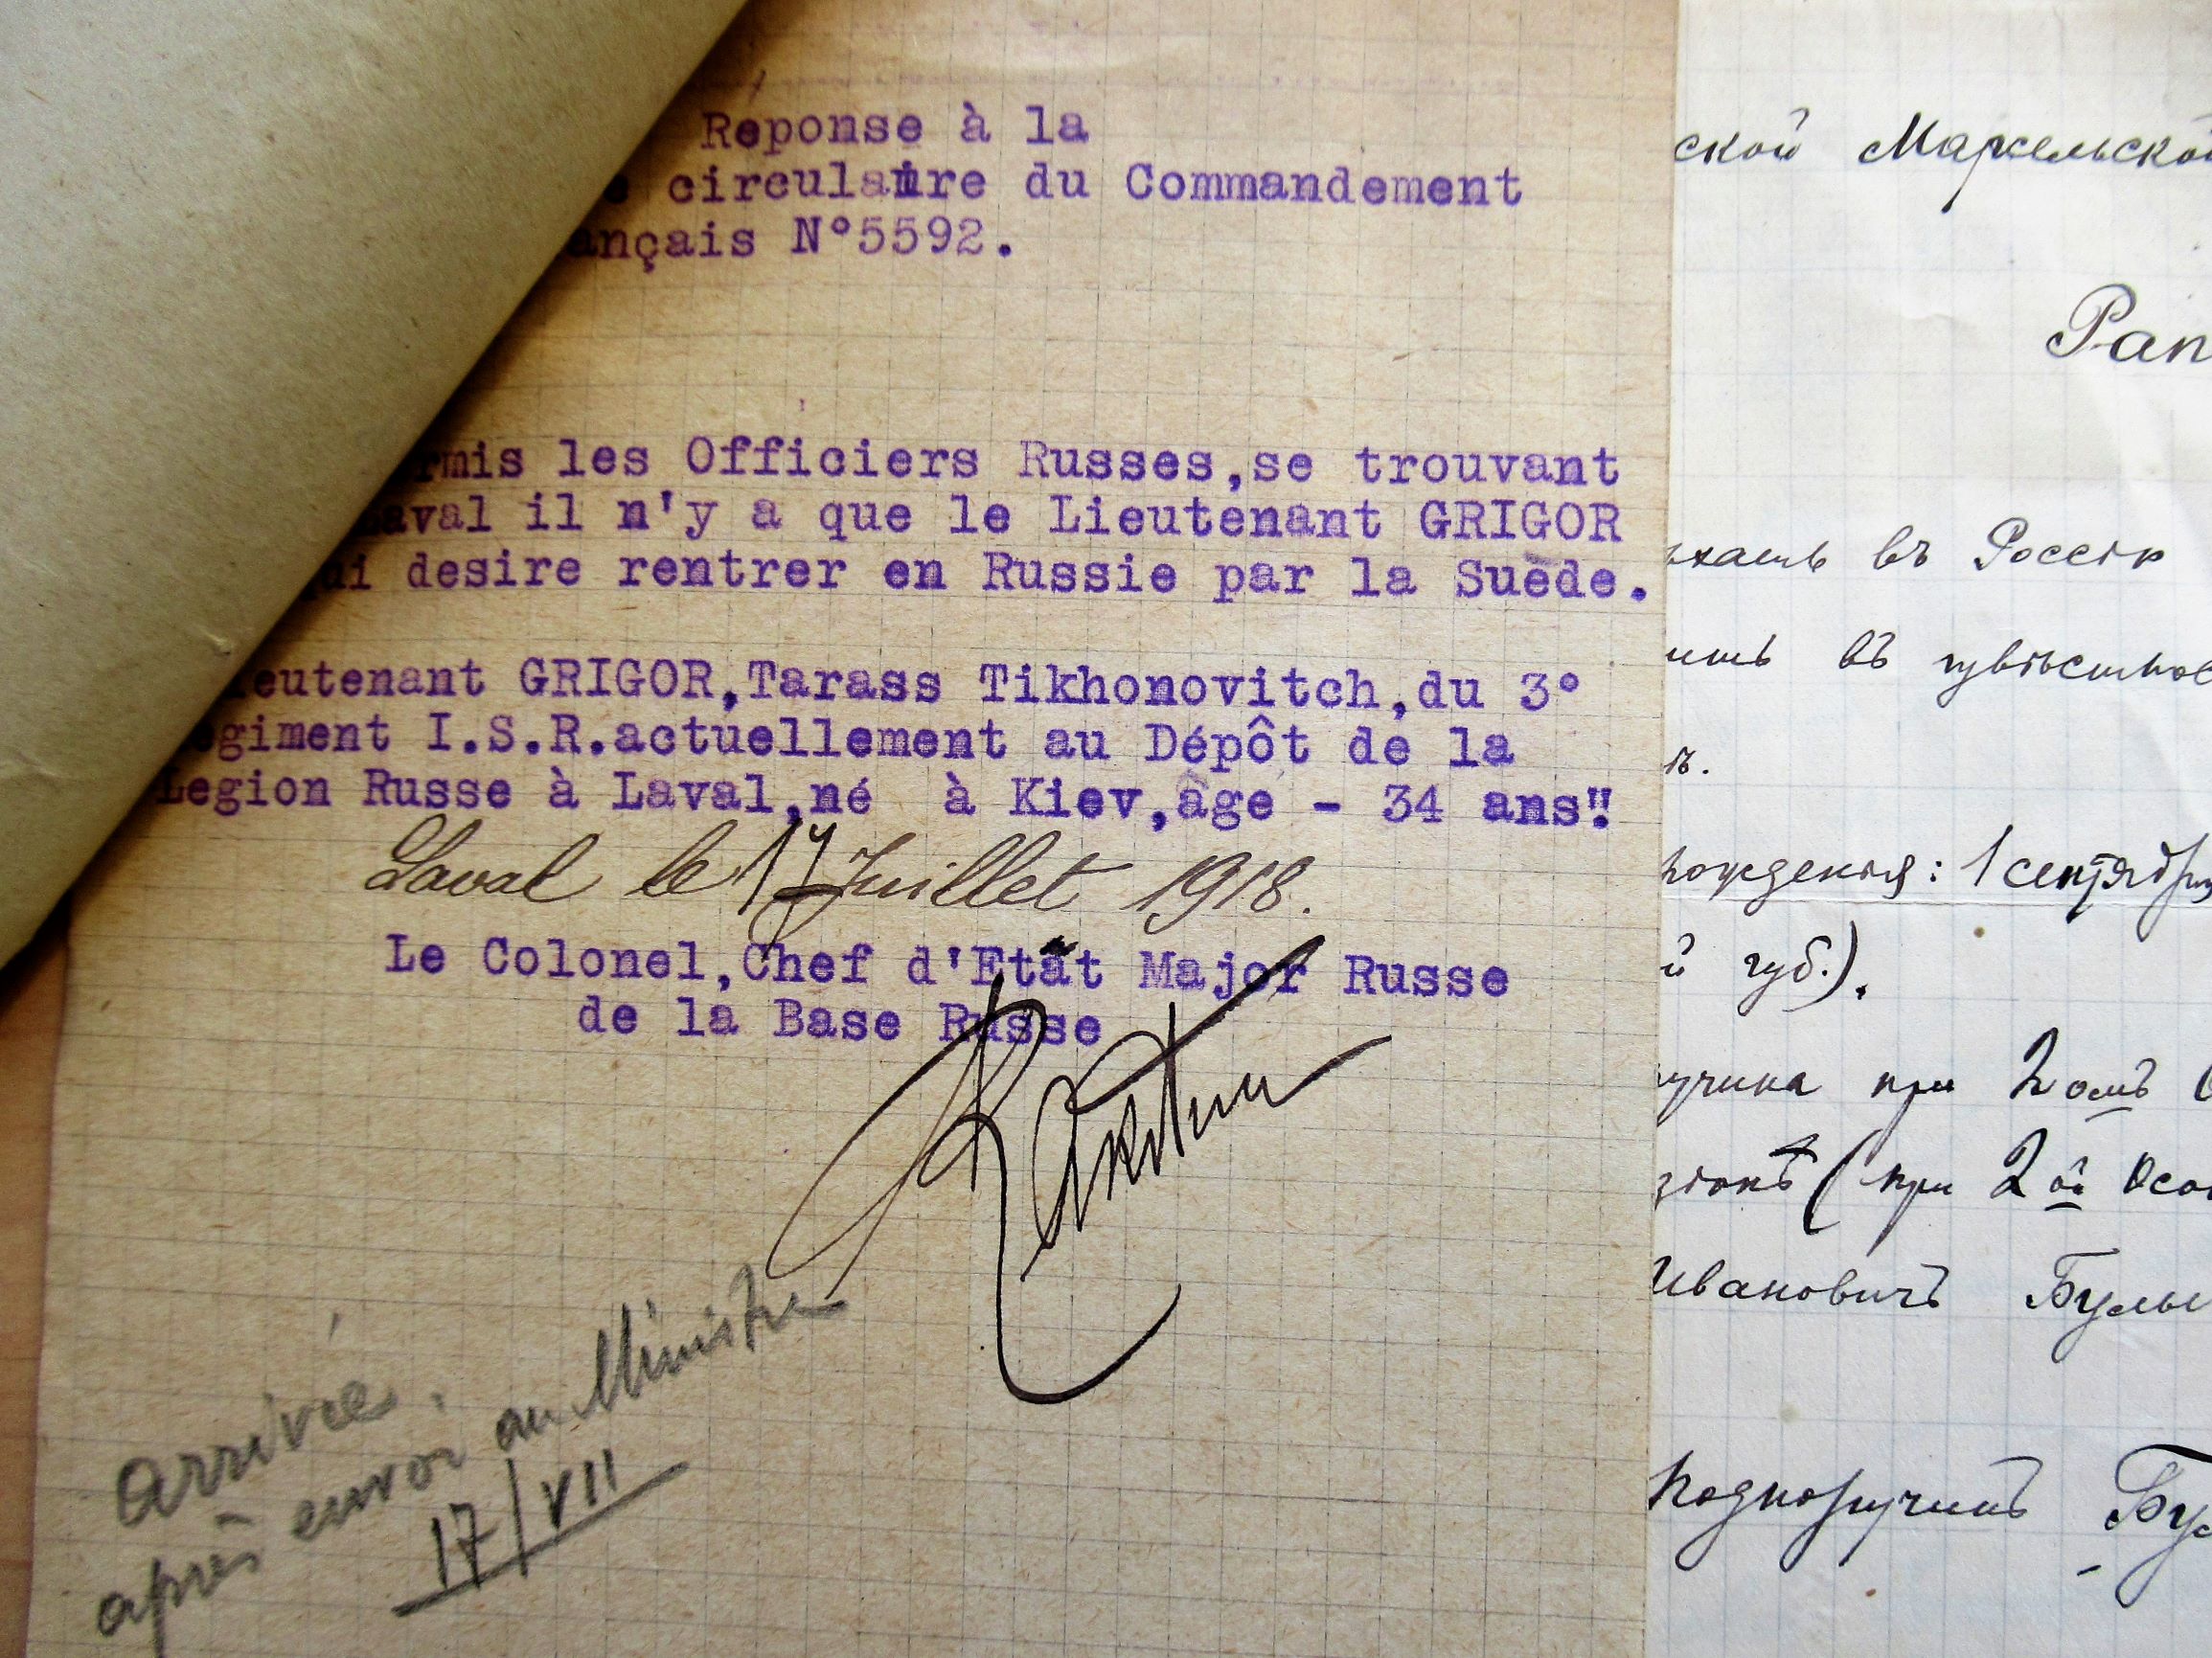 Reponse à la
circulaire du Commandement
ançais N°5592.
rmis les Officiers Russes,se trouvant
aval il n'y a que le Lieutenant GRIGOR
ui desire rentrer en Russie par la Suède.
ieutenant GRIGOR,Tarass Tikhonovitch,du 3°
egiment I.S.R.actuellement au Dépôt de la
Legion Russe à Laval,né à Kiev,âge - 34 ans"!
Laval le 17 Juillet 1918.
Le Colonel,Chef d'Etat Major Russe
de la Base Russe
arrivée.
après envoi au Ministre
17/VII
ской
Рап
въ Россію
въ
рожденія: 1 сентября
й губ.).
при
(при 2ой Осо
Ивановичъ Булы
Подпоручикъ Бу